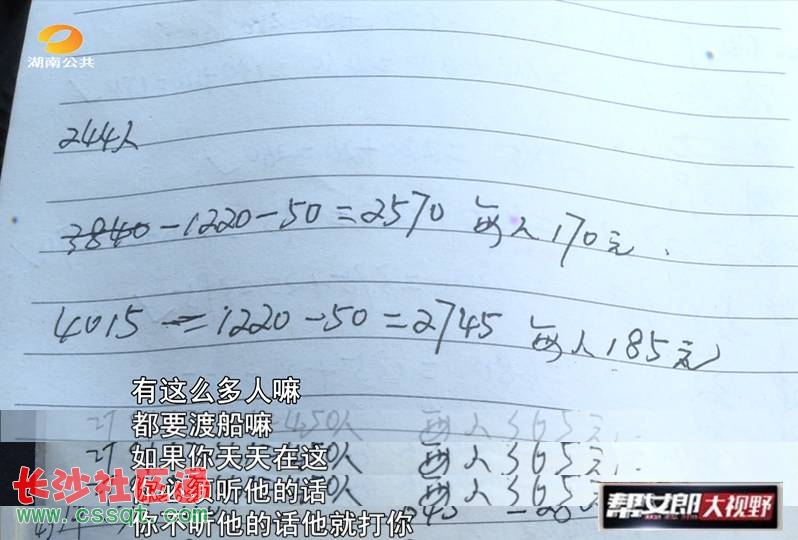 湖南公共
244人
3840-1220-50=2570 每人170元.
4015-=1220-50=2745 每人185元
有这么多人嘛
都要渡船嘛
450人 每人365元
如果你天天在这
0人 每人365元
听他的话
0人 每人365元
你不听他的话他就打你
长沙社区通
www.cssqt.com
帮女郎大视野